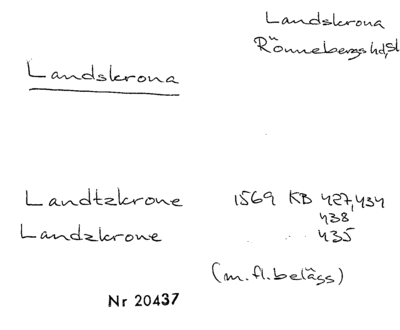 Landskrona
Rönnebergs hd, Sk
Landskrona
Landtzkrone 1569 KB 427, 434
438
Landzkrone 435
(m.fl. belägg)
Nr 20437